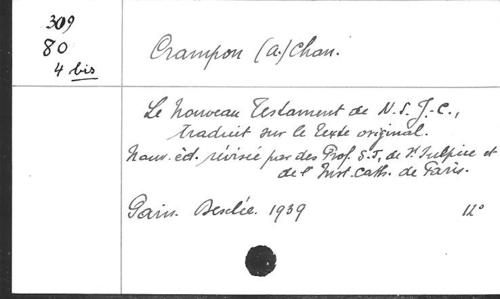 309
80
4 bis
Crampon (A.) Chan.
Le Nouveau Testament de N.S.J.-C.,
traduit sur le texte original.
Nouv. éd. révisée par des Prof. S.J., de St Sulpice et
de l'Inst. Cath. de Paris.
Paris. Desclée. 1939 12°